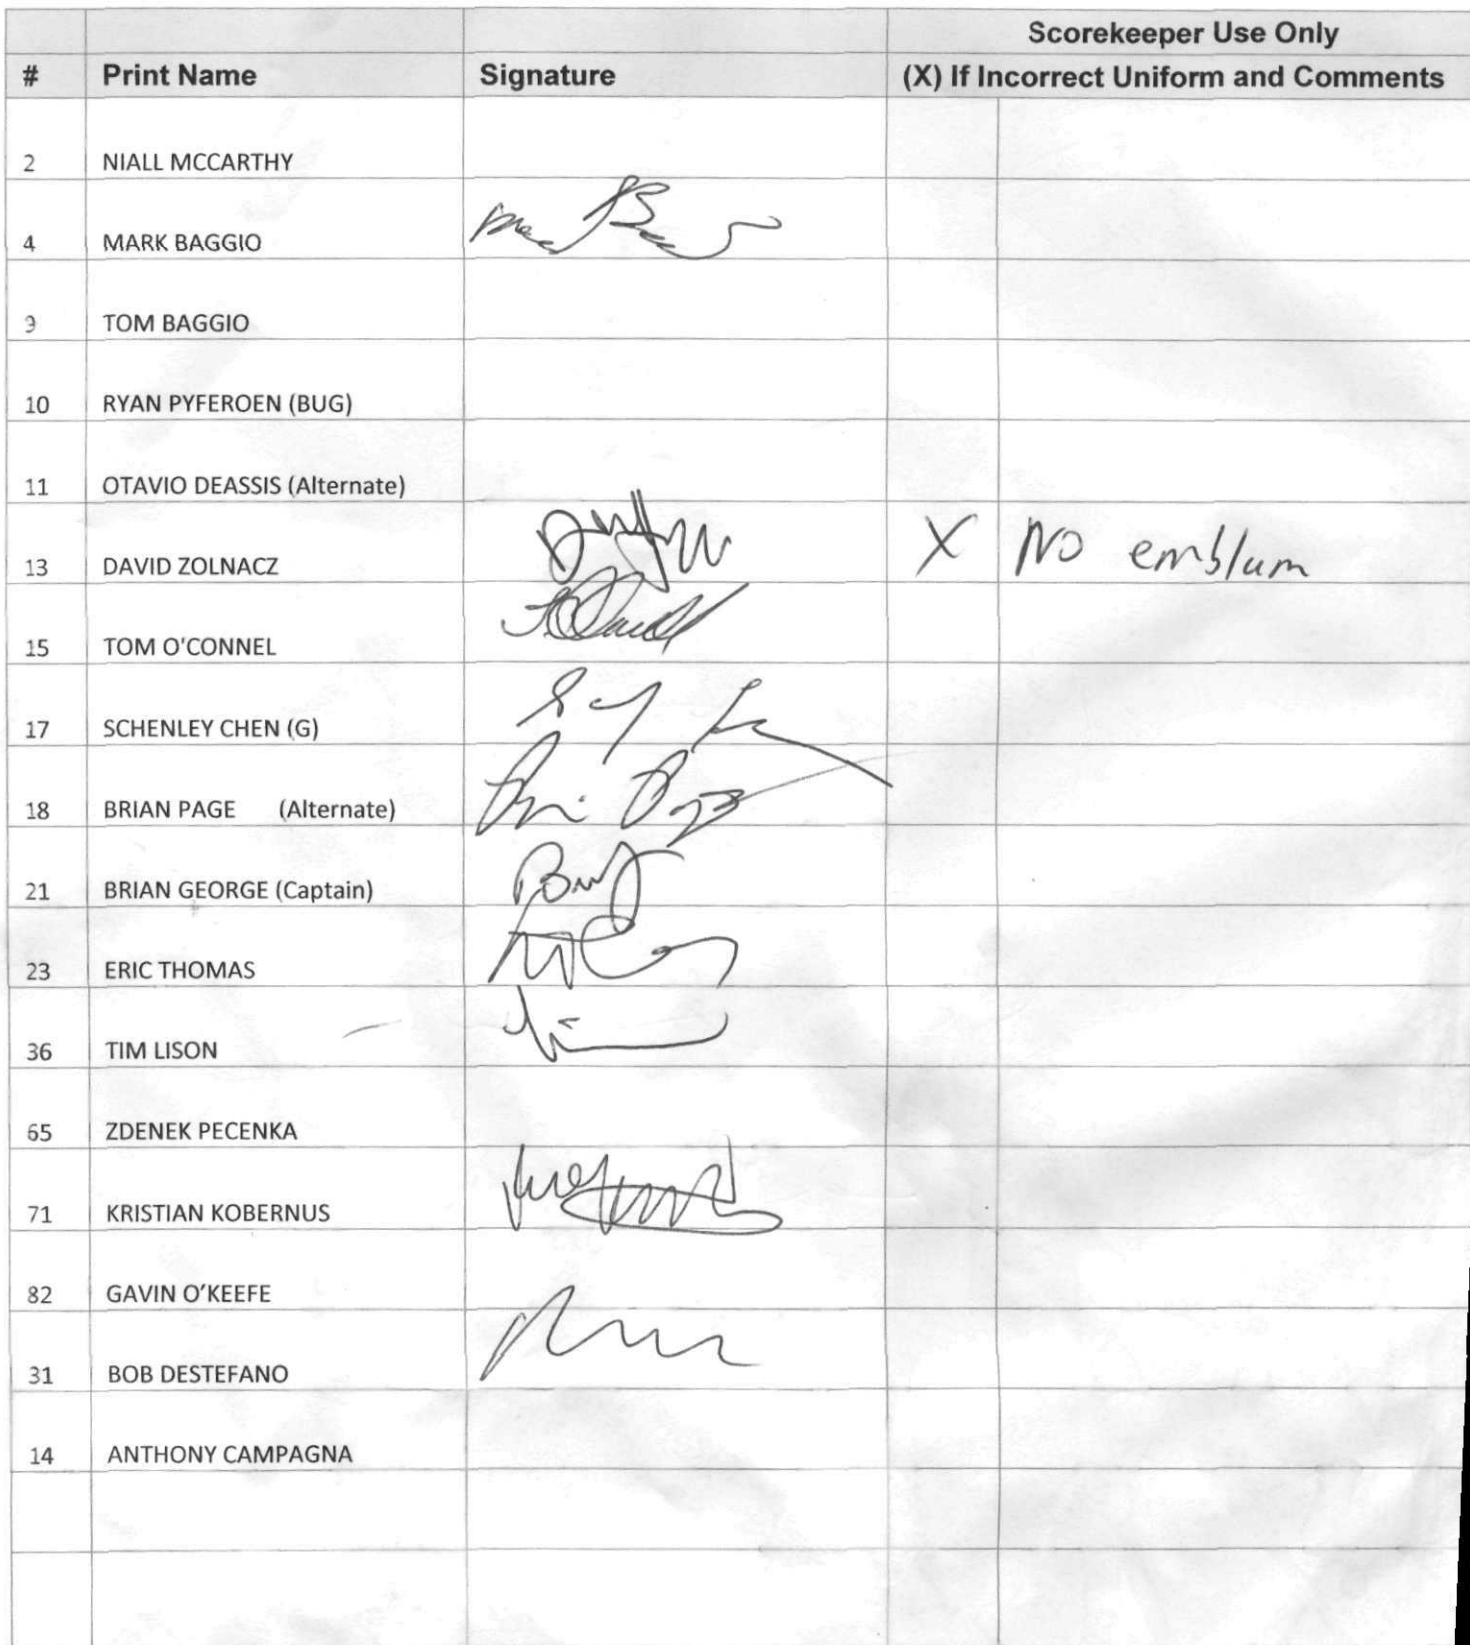 Scorekeeper Use Only
# Print Name Signature (X) If Incorrect Uniform and Comments
2 NIALL MCCARTHY
4 MARK BAGGIO
9 TOM BAGGIO
10 RYAN PYFEROEN (BUG)
11 OTAVIO DEASSIS (Alternate)
13 DAVID ZOLNACZ X NO emblum
15 TOM O'CONNEL
17 SCHENLEY CHEN (G)
18 BRIAN PAGE (Alternate)
21 BRIAN GEORGE (Captain)
23 ERIC THOMAS
36 TIM LISON
65 ZDENEK PECENKA
71 KRISTIAN KOBERNUS
82 GAVIN O’KEEFE
31 BOB DESTEFANO
14 ANTHONY CAMPAGNA